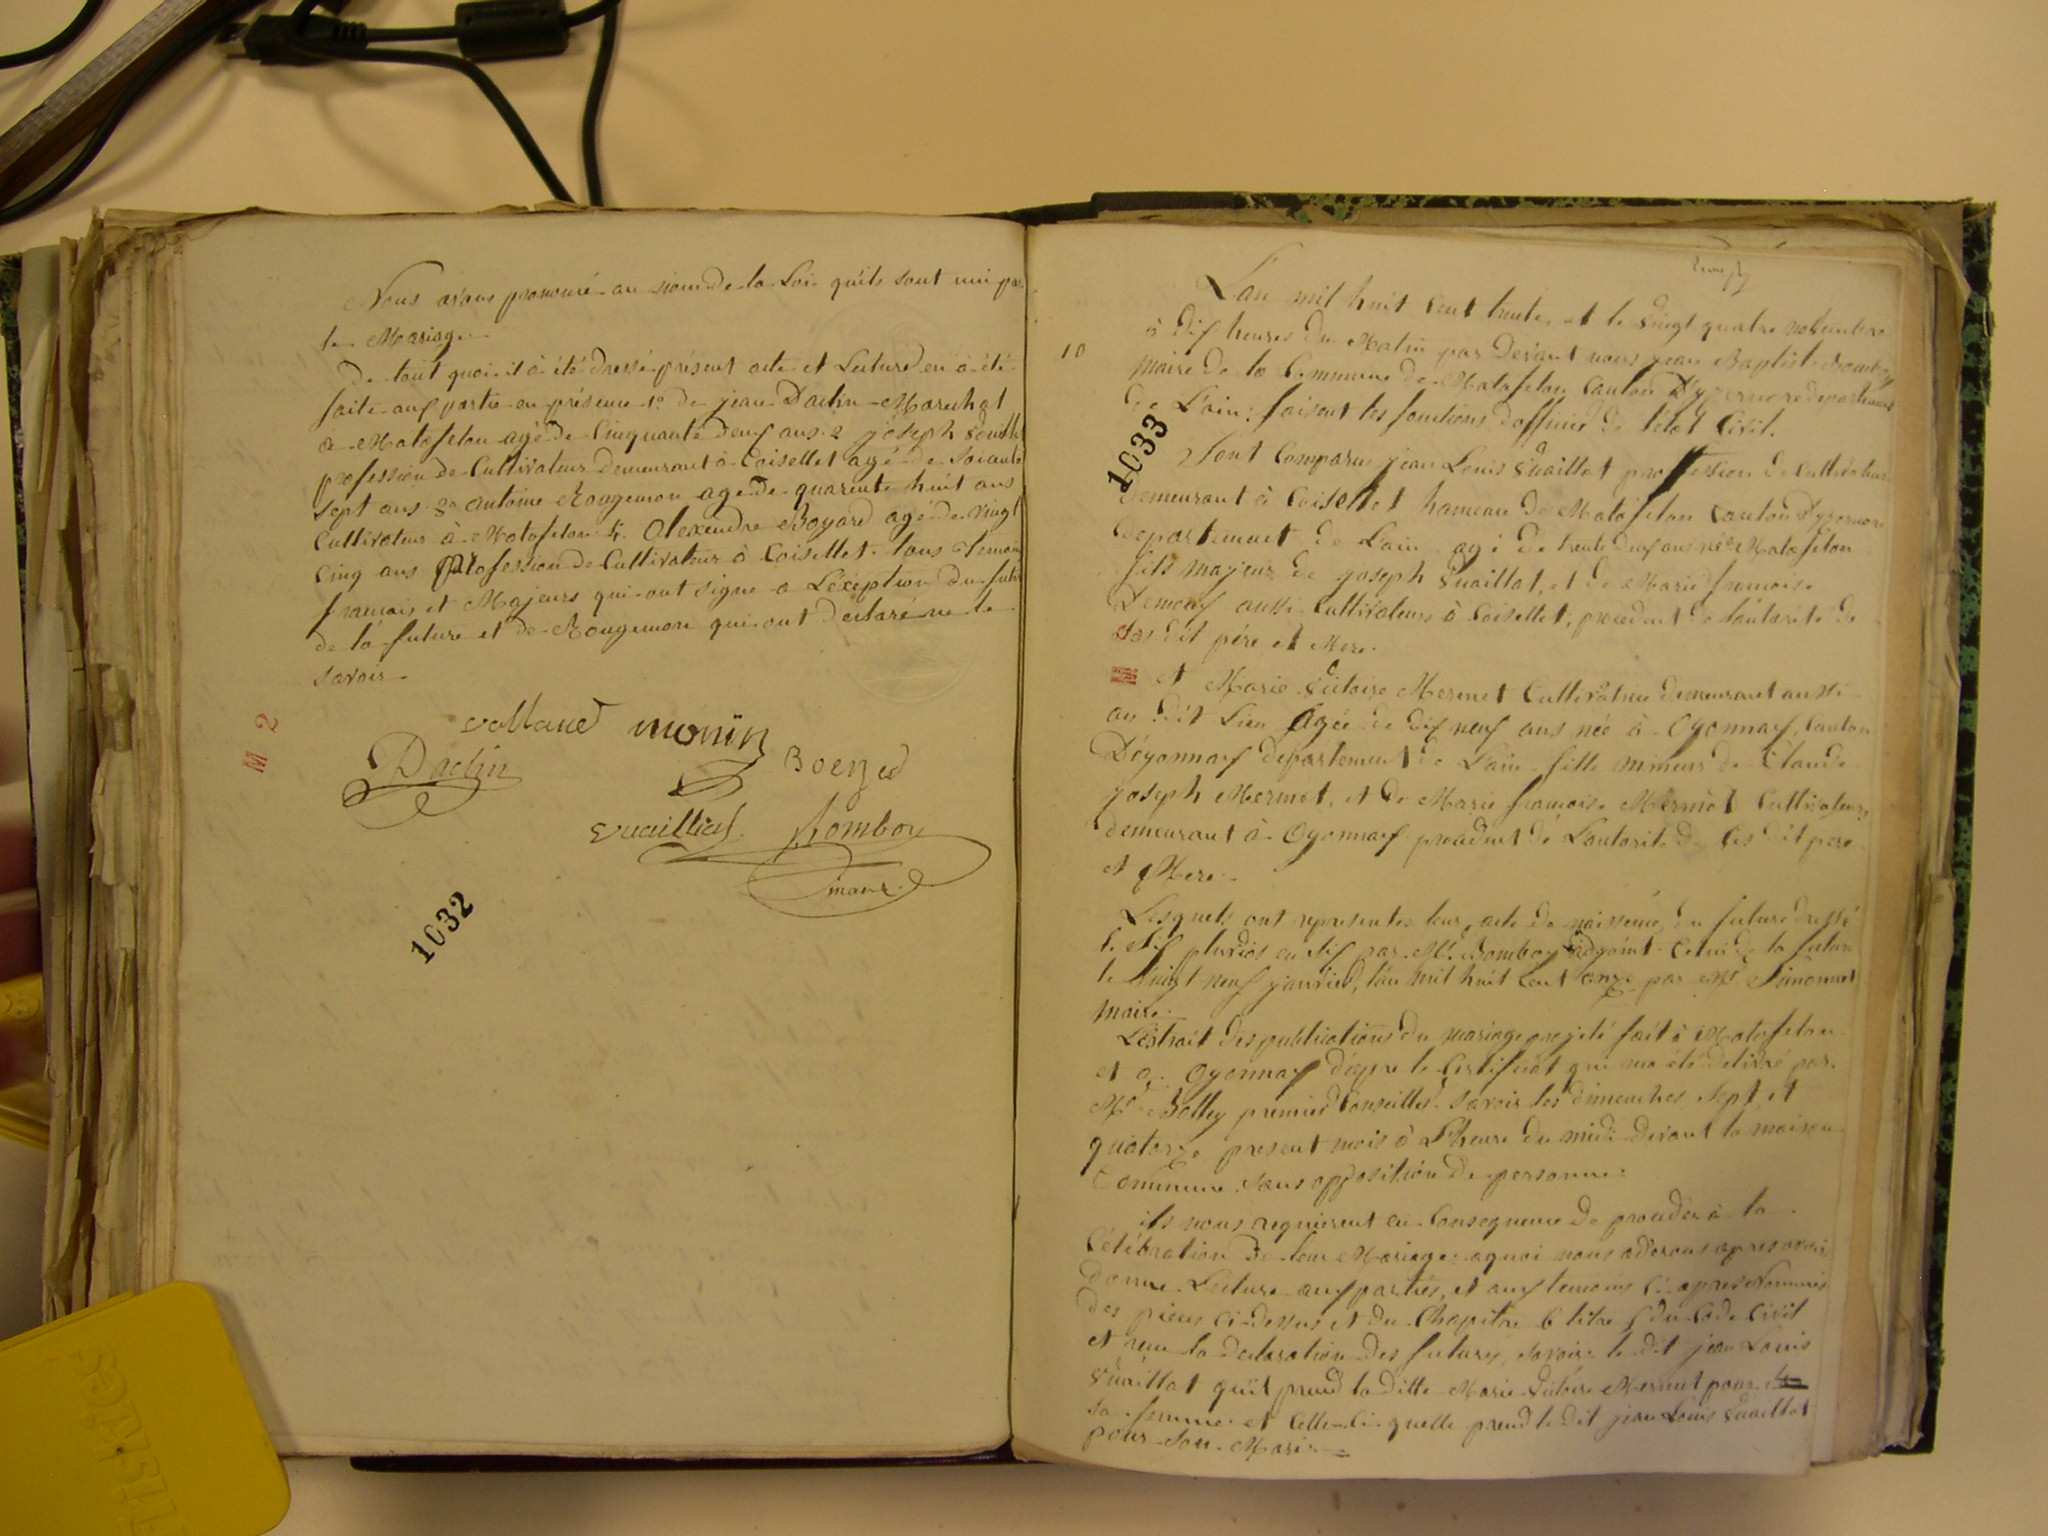 Nous avons prononcé au nom de la Loi qu'ils sont uni par
le Mariage.
De tout quoi il à été dressé présent acte et Lecture en à été
faite aux partie en présence 1o de jean Daclin Marechal
a Matafelon agé de Cinquante deux ans. 2 joseph
profession de Cultivateur demeurant à Coisellet agé de Soixante
sept ans. 3o antoine Rougemon agé de quarente huit ans
Cultivateur à Matafelon 4. Alexendre Boyard agé de Vingt
Cinq ans profession de Cultivateur à Coisellet. tous Temoin
francais et Majeurs qui ont signe a L'exéption du futur
de la future et de Rougemon qui ont declaré ne le
savoir.
vollaned monin
Daclin
Boyard
vuaillat Bomboy
maire
M 2
1032
10
1033
L'an mil huit Cent trente et le Vingt quatre novembre
à dix heures du Matin par Devant nous jean Baptiste Bomboy
maire de la Commune de Matafelon Canton D'yzernore departement
de L'ain: faisant les fonctions d'officier de l'etat Civil.
Sont Comparus jean Louis Vuaillat profession de Cultivateur
demeurant à Coisellet hameau de Matafelon canton D'yzernore
departement de L'ain agé de trente deux ans né à Matafelon
fils majeur de joseph Vuaillat, et de Marie francoise
aussi Cultivateurs à Coisellet, procedent de l'autorité de
ses dit père et Mere.
et Marie Victoire Mermet Cultivatrice demeurant aussi
au dit Lieu Agée de dix neuf ans née à Oyonnax, Canton
D'oyonnax departement de L'ain fille mineure de Claude
joseph Mermet, et de Marie francoise Mermet Cultivateurs
demeurant à Oyonnax procedent de L'autorité de ses dit pere
et Mere.
Lesquels ont représentes leur acte de naissence, du future dressé
le dix pluviôs an six par Mr. Bomboy adgoint. Celui de la future
le Vingt neuf janvier, l'an mil huit Cent onze par Mr
maire.
L'extrait des publications du mariage projeté fait à Matafelon
et a Oyonnax d'apre le Certificat qui ma été delivré par
Mr Bolley premier Conseiller. Savoir les dimenches Sept et
quatorze present mois à L'heure du midi devant la maison
Commune. Sans opposition de personne:
ils nous requièrent en Consequence de procéder à la
Célébration de leur Mariage: aquoi nous adérons apres avoir
donné Lecture aux parties, et aux temoins Ci-apres Nommés
des pieces Ci-dessus et du Chapitre 6 titre 5 du Code Civil
et recu la declaration des futures, savoir: le dit jean Louis
Vuaillat qu'il prend la ditte Marie Victoire Mermet pour
sa femme et Celle-Ci quelle prend le dit jean Louis Vuaillat
pour Son Mari.